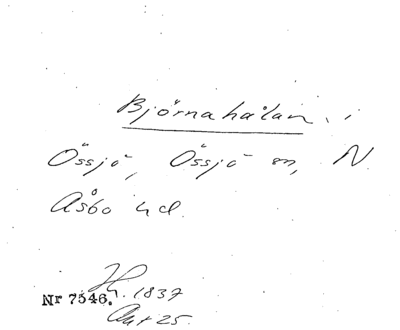 Björnahålan, i
Össjö, Össjö sn, N.
Åsbo hd.
H. 1837
Nr 7546.
Akt 25.